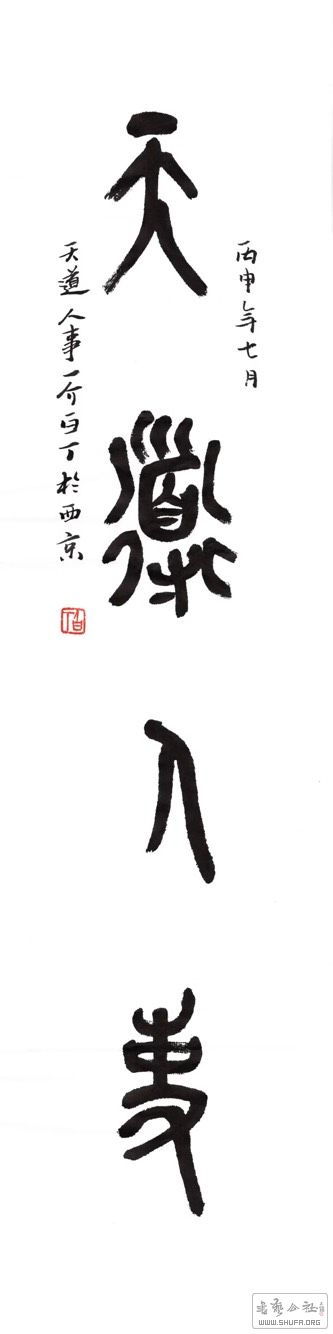 丙申年七月
天道人事
天道人事一介白丁於西京
白丁
書藝公社
WWW.SHUFA.ORG